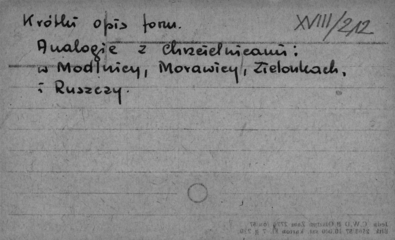 Krótki opis form.
XVIII/212
Analogie z chrzcielnicami:
w Modlnicy, Morawicy, Zielonkach,
i Ruszczy.